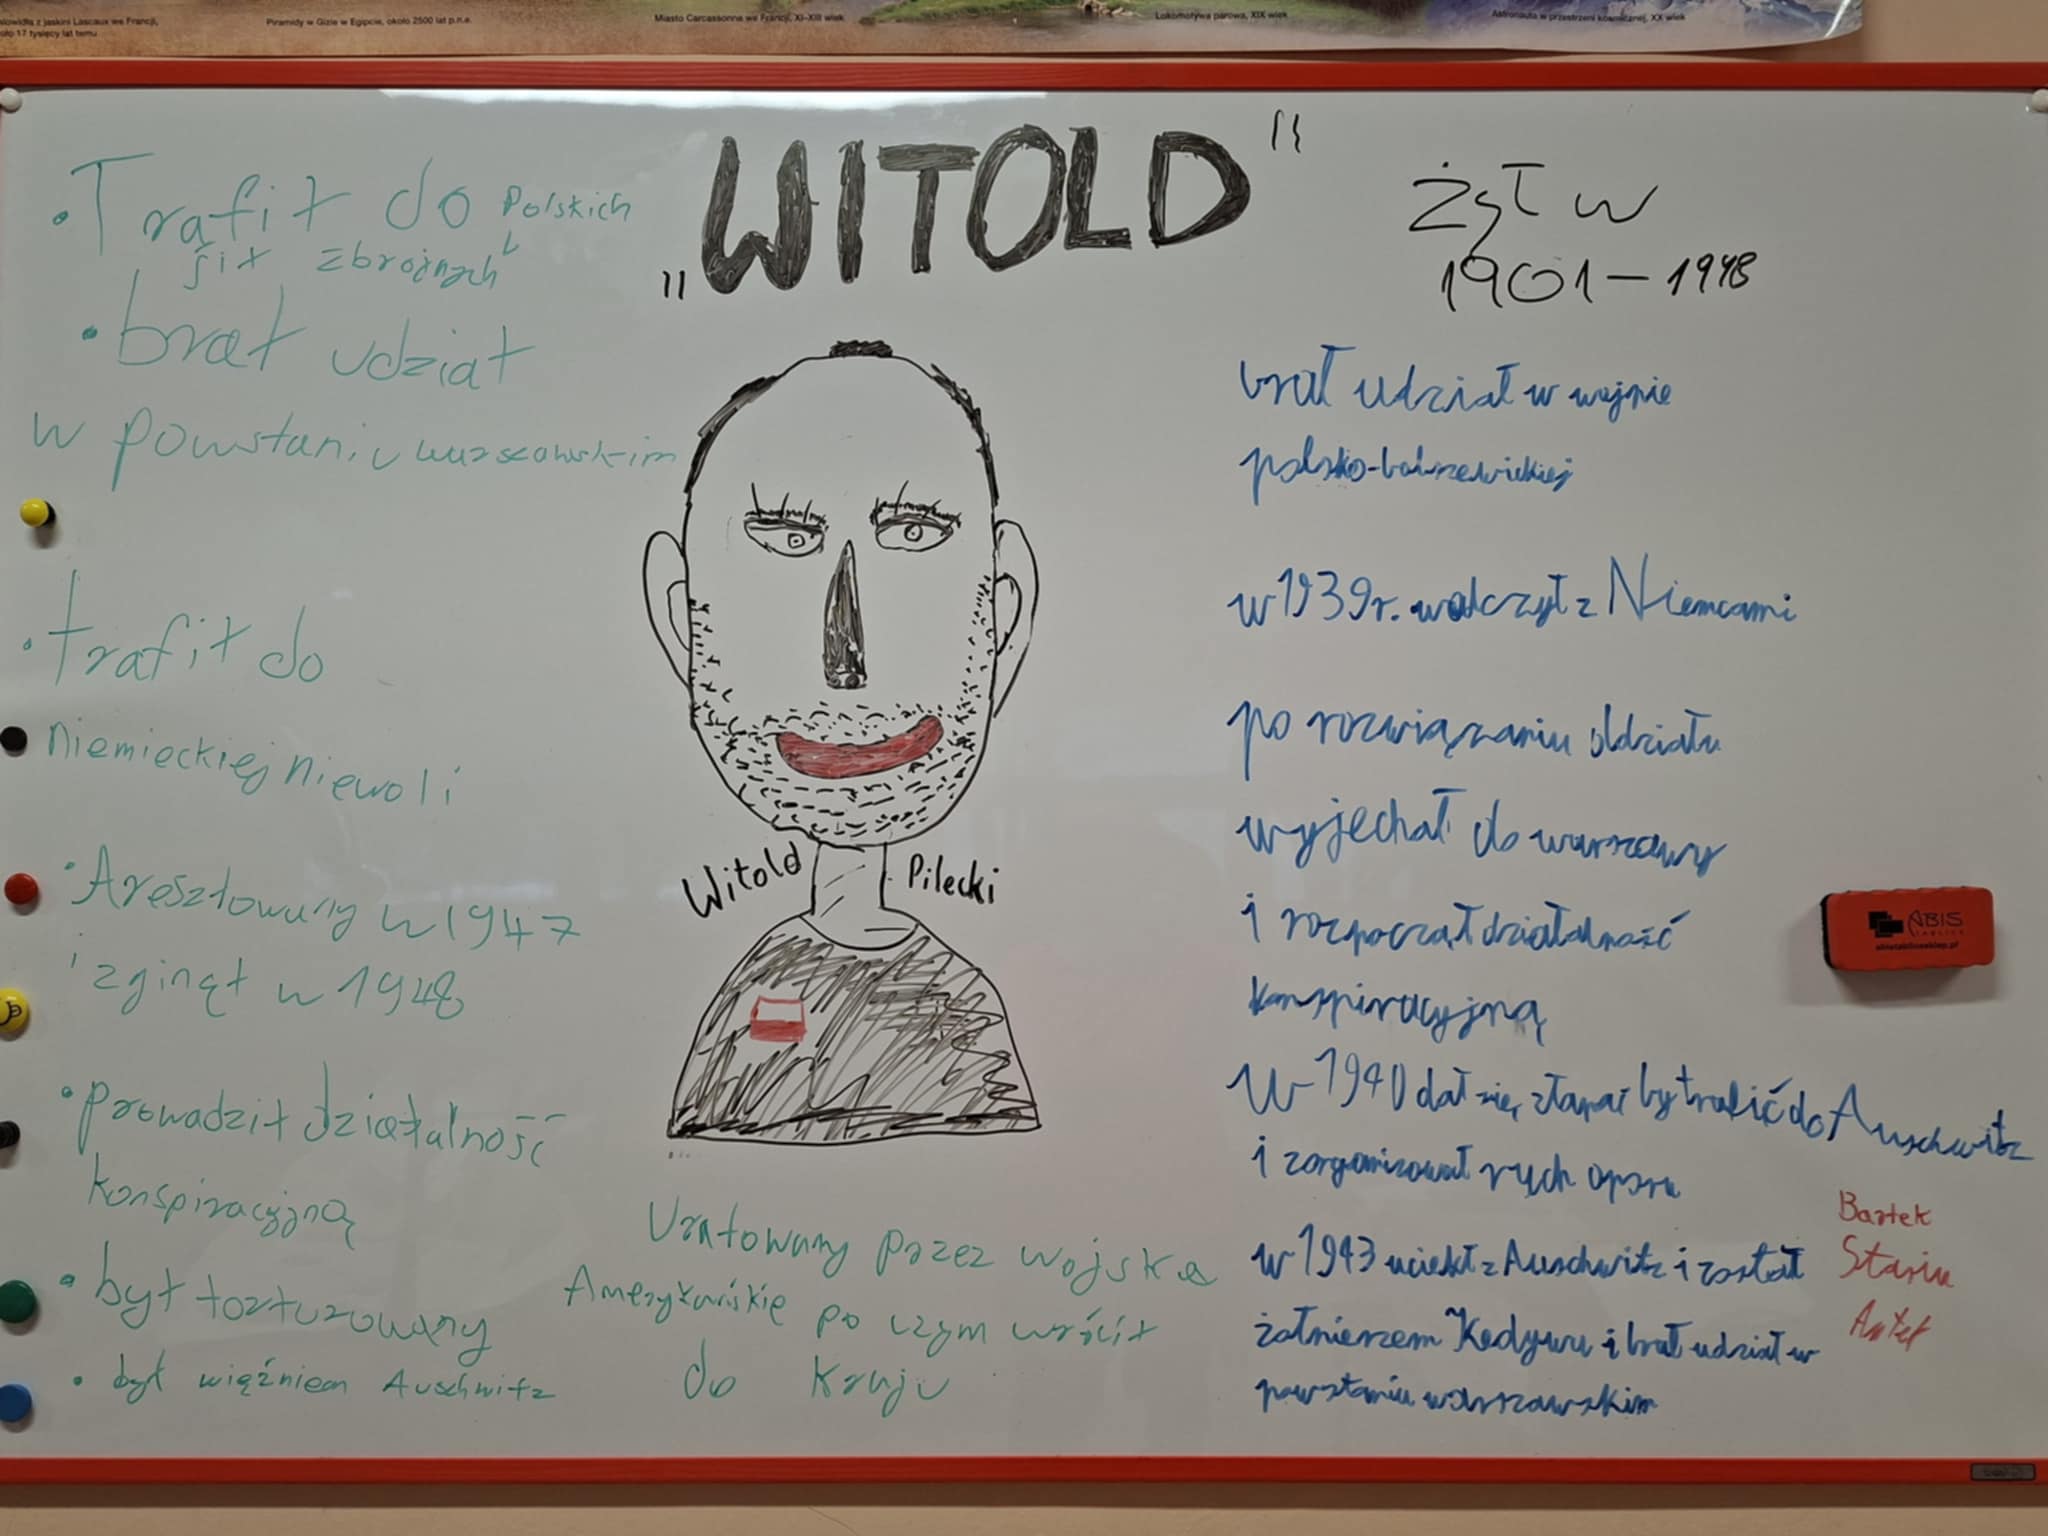 słowidła z jaskini Lascaux we Francji,
oło 17 tysięcy lat temu
Piramidy w Gizie w Egipcie, około 2500 lat p.n.e.
Miasto Carcassonne we Francji, XI–XIII wiek
Lokomotywa parowa, XIX wiek
Astronauta w przestrzeni kosmicznej, XX wiek
„WITOLD"
• Trafił do Polskich
sił zbrojnych
• brał udział
w powstaniu warszawskim
• trafił do
niemieckiej niewoli
• Aresztowany w 1947
i zginął w 1948
• prowadził działalność
konspiracyjną
• był torturowany
• był więźniem Auschwitz
Witold Pilecki
Uratowany przez wojska
Amerykańskie po czym wrócił
do kraju
żył w
1901–1948
brał udział w wojnie
polsko-bolszewickiej
w 1939r. walczył z Niemcami
po rozwiązaniu oddziału
wyjechał do warszawy
i rozpoczął działalność
konspiracyjną
W 1940 dał się złapać by trafić do Auschwitz
i zorganizował ruch oporu
w 1943 uciekł z Auschwitz i został
żołnierzem Kedywu i brał udział w
powstaniu warszawskim
Bartek
Stasiu
ABIS